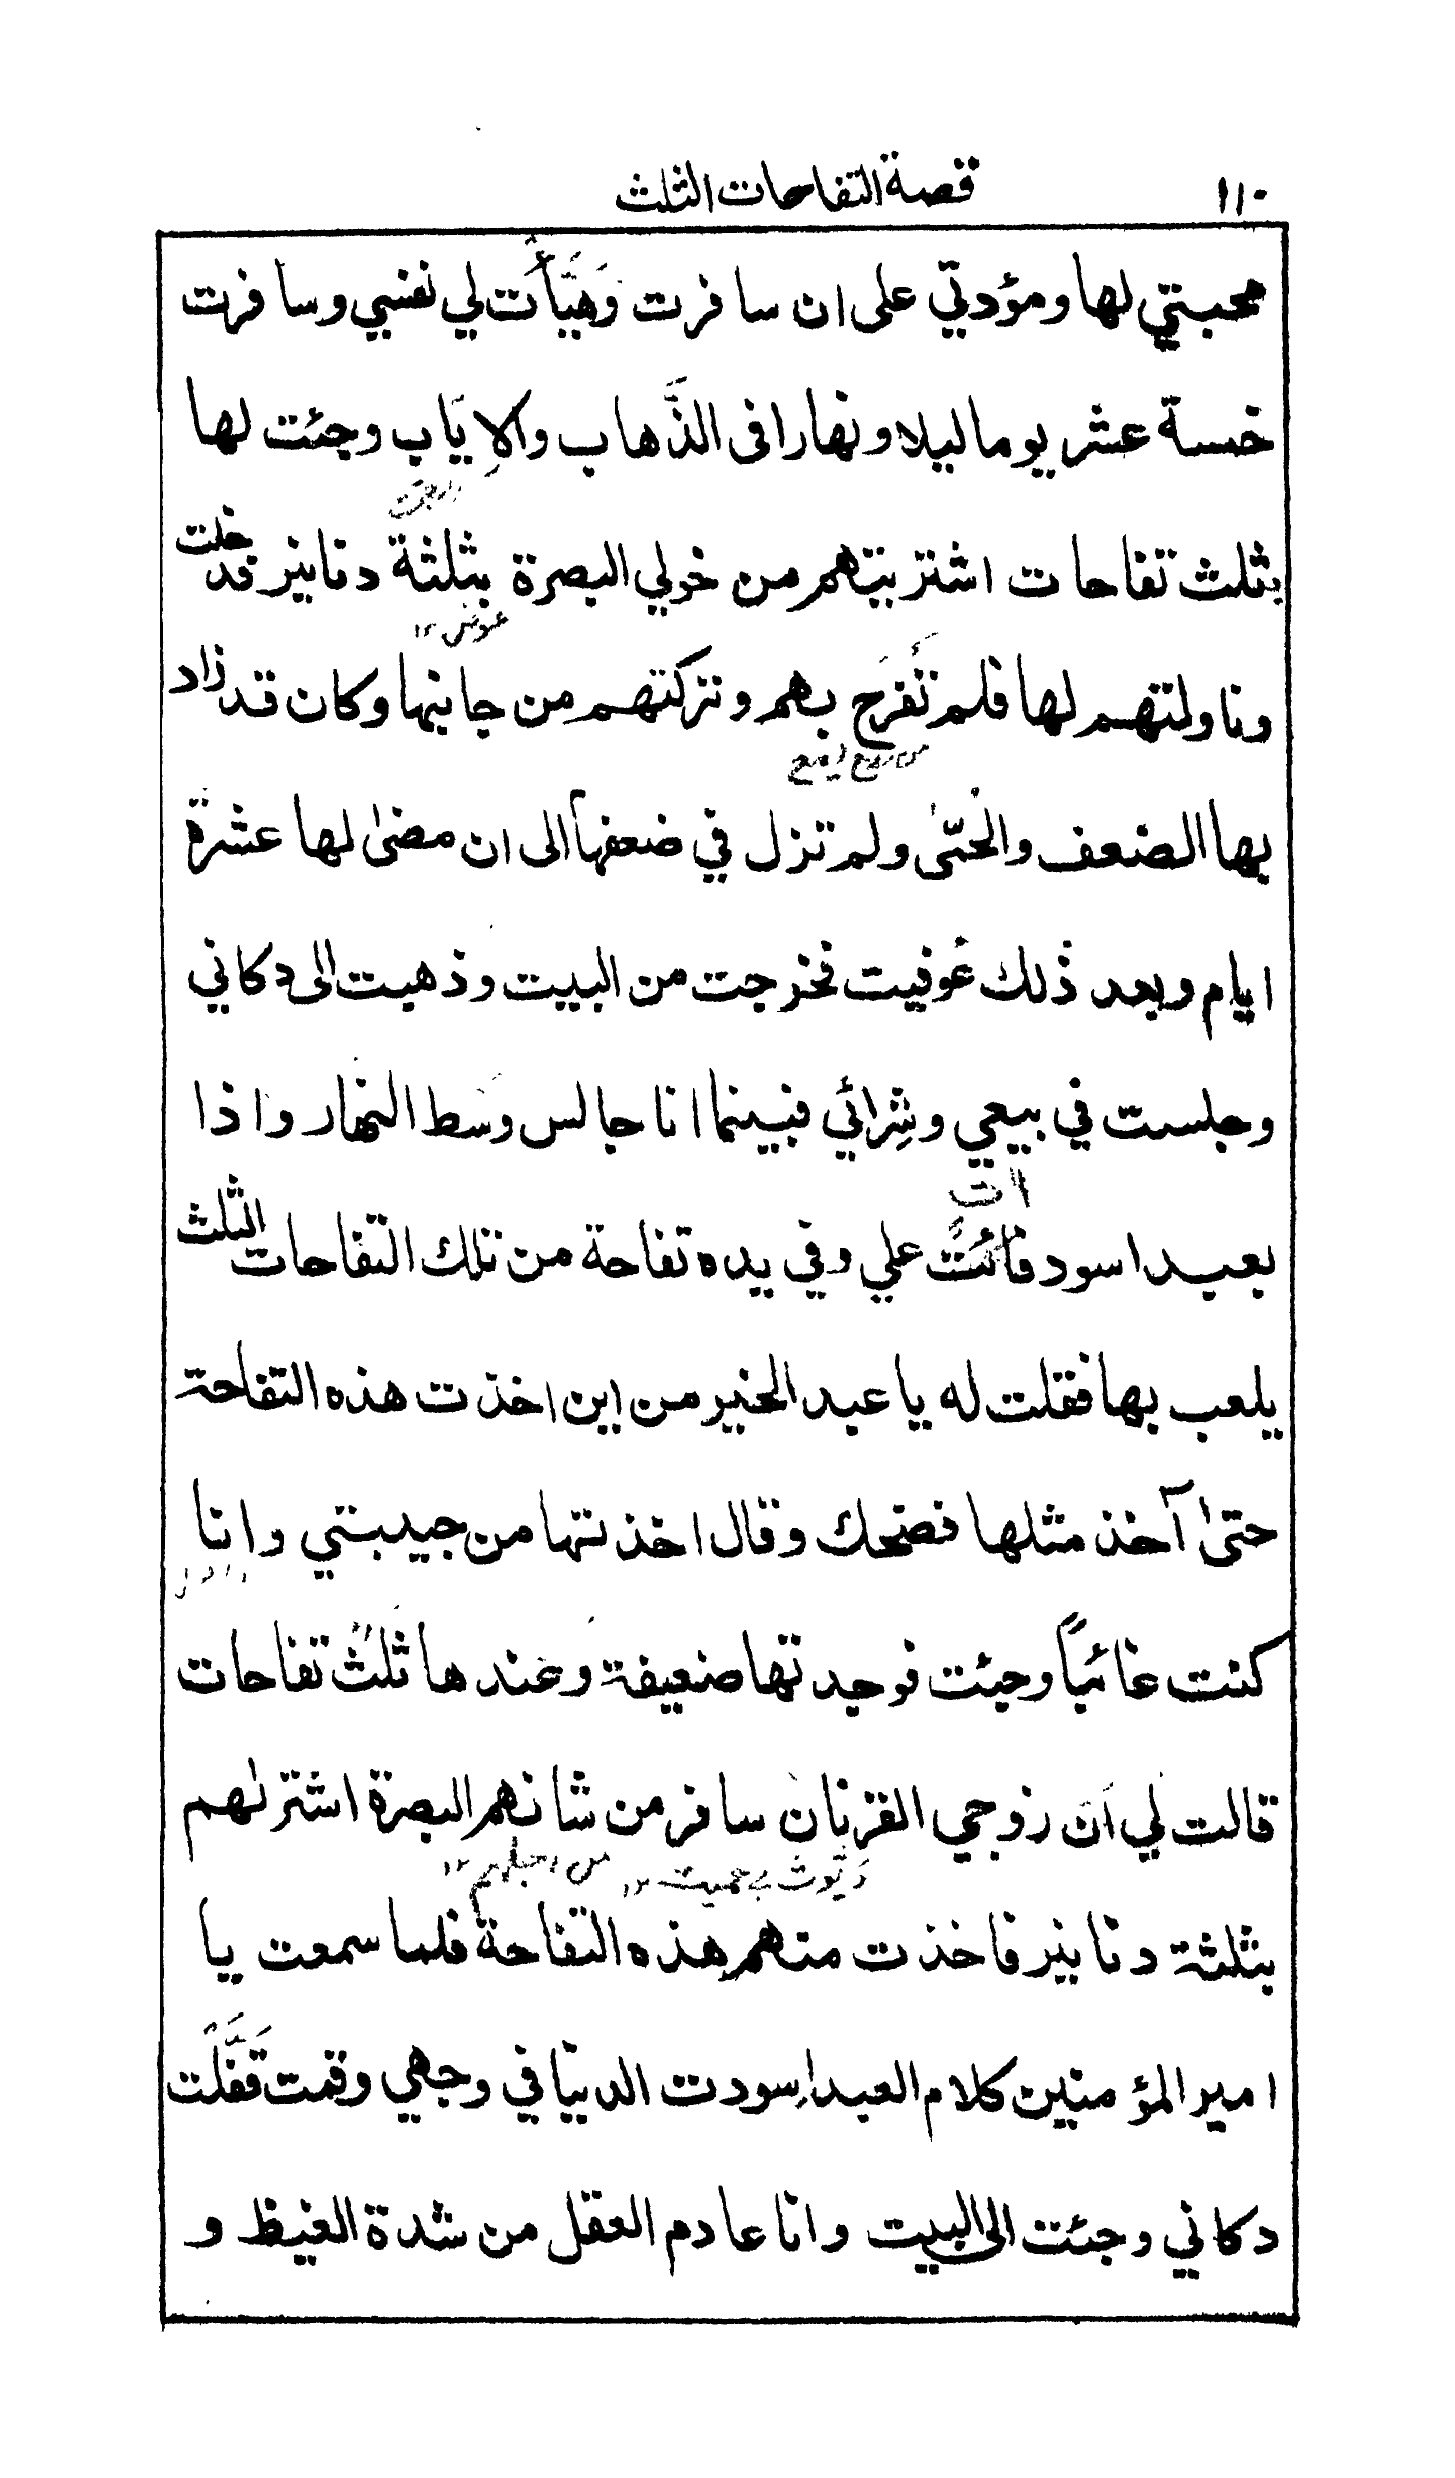 ١١٠ قصة التفاحات الثلث
محبتي لها ومؤدتي على ان سافرت وَهَيَّأت لي نفسي وسافرت
خمسة عشر يوما ليلا ونهارا فى الذَّهاب والاِيَاب وجئت لها
بثلث تفاحات اشتريتهم من خولي البصرة بثلثة دنانير فدخلت
عوض ١٢
وناولتهم لها فلم تَفرَح بهم وتركتهم من جانبها وكان قد زاد
بها الضعف والحمّى ولم تزل في ضعفها الى ان مضىٰ لها عشرة
ايام وبعد ذلك عُوفيت فخرجت من البيت وذهبت الى دكاني
وجلست في بيعي وشِرائي فبينما انا جالس وسَط النهار واذا
بعبد اسود فائت علي وفي يده تفاحة من تلك التفاحات الثلث
يلعب بها فقلت له يا عبد الخير من اين اخذت هذه التفاحة
حتىٰ آخذ مثلها فضحك وقال اخذتها من حبيبتي وانا
كنت غائباً وجئت فوجدتها ضعيفة وعندها ثلثُ تفاحات
قالت لي انَ زوجي القرنان سافر من شانهم البصرة اشترٰهم
ديّوث بے حميت ١٢ من اجلهم ١٢
بثلثة دنانير فاخذت منهم هذه التفاحة فلما سمعت يا
امير المؤمنين كلام العبد اسودت الدنيا في وجهي وقمت قَفَّلت
دكاني وجئت الى البيت وانا عادم العقل من شدة الغيظ و